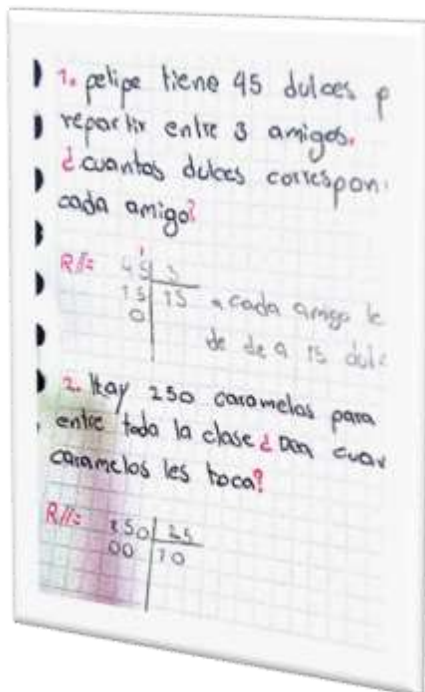 1. pelipe tiene 45 dulces p
repartir entre 3 amigos.
¿cuantos dulces correspon
cada amigo?
R//= 45 3
15 15 a cada amigo le
0
de de a 15 dulc
2. Hay 250 caramelos para
entre toda la clase ¿ cuan
caramelos les toca?
R//= 250 25
00 10